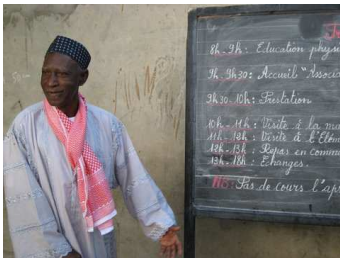 8h-9h: Education physi
9h-9h30: Accueil "Associa
9h30-10h: Prestation
10h-11h: Visite à la ma
11h-12h: Visite à l'Elém
12h-13h: Repas en commu
13h-18h: Echanges.
NB: Pas de cours l'apr